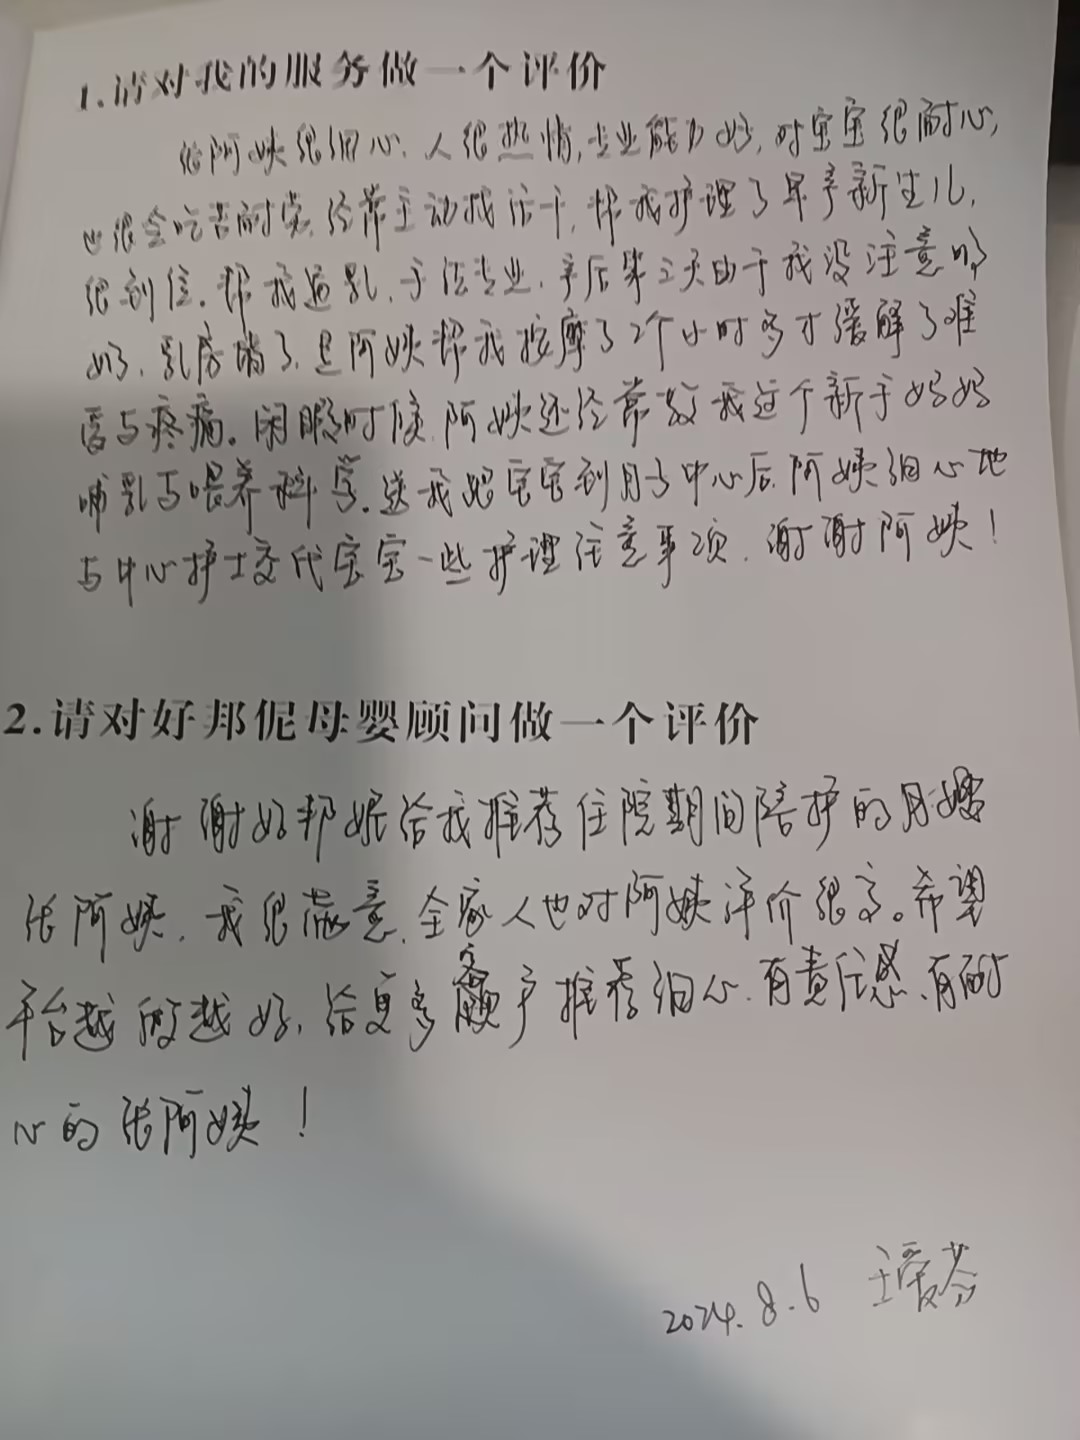 1.请对我的服务做一个评价
张阿姨很细心,人很热情,专业能力好,对宝宝很耐心,
也很会吃苦耐劳,经常主动找活干,帮我护理了早产新生儿,
很到位.帮我通乳,手法专业.产后第三天由于我没注意
奶,乳房堵了,是阿姨帮我按摩了2个小时多才缓解了难
受与疼痛。闲暇时候,阿姨还经常教我这个新手妈妈
哺乳与喂养科学.送我跟宝宝到月子中心后,阿姨细心地
与中心护士交代宝宝一些护理注意事项.谢谢阿姨!
2.请对好邦伲母婴顾问做一个评价
谢谢好邦妮给我推荐住院期间陪护的月嫂
张阿姨,我很满意,全家人也对阿姨评价很高。希望
平台越做越好,给更多客户推荐细心、有责任感、有耐
心的张阿姨!
2024.8.6 王爱芬